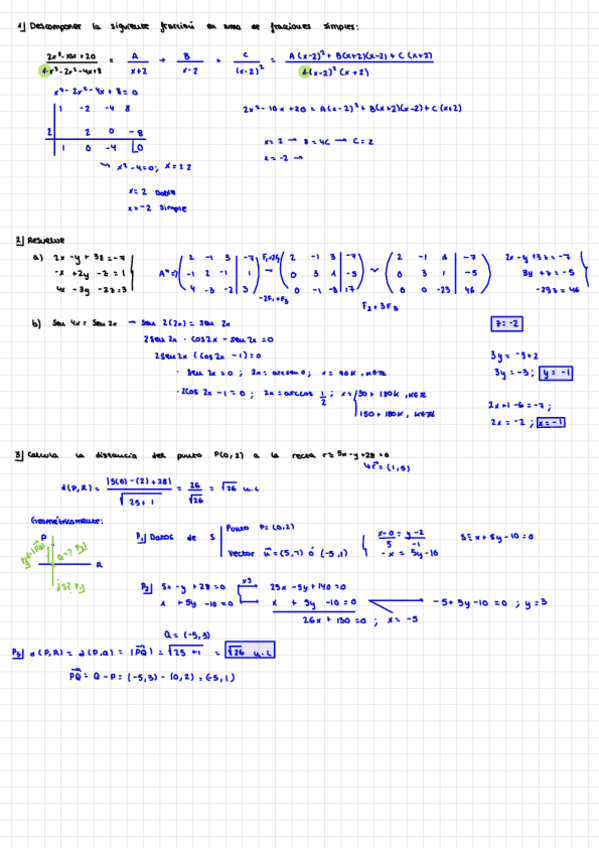 1] Descomponer la siguiente fracción en suma de fracciones simples:
2x²-10x+20 / 1·x³-2x²-4x+8 = A / x+2 + B / x-2 + C / (x-2)² = A(x-2)² + B(x+2)(x-2) + C(x+2) / 1·(x-2)²(x+2)
x³-2x²-4x+8=0
1 -2 -4 8
2 2 0 -8
1 0 -4 0
2x²-10x+20 = A(x-2)² + B(x+2)(x-2) + C(x+2)
x=2 → 8=4C → C=2
x=-2 →
x²-4=0; x=±2
x=2 Doble
x=-2 Simple
2] Resuelve
a) 2x-y+3z=-7
-x+2y-z=1
4x-3y-2z=3
2 -1 3 -7
-1 2 -1 1
4 -3 -2 3
-2F₁+F₃
2 -1 3 -7
0 3 1 -5
0 -1 -8 17
F₂+3F₃
2 -1 3 -7
0 3 1 -5
0 0 -23 46
2x-y+3z=-7
3y+z=-5
-23z=46
z=-2
3y=-5+2
3y=-3; y=-1
2x+1-6=-7;
2x=-2; x=-1
b) Sen 4x = Sen 2x → sen 2(2x) = sen 2x
2sen 2x · cos 2x - sen 2x = 0
sen 2x = 0; 2x = arcsen 0; x = 90k, k∈Z
· 2cos 2x - 1 = 0; 2x = arccos 1/2; x = 30 + 180k, k∈Z
150 + 180k, k∈Z
3] Calcula la distancia del punto P(0,2) a la recta r≡5x-y+28=0
d(P,R) = |5(0)-(2)+28| / √25+1 = 26 / √26 = √26 u.l
Geométricamente:
P
R
P₁] Datos de S
Punto P=(0,2)
Vector u=(5,-1) ó (-5,1)
x-0 / 5 = y-2 / -1
-x=5y-10
S≡x+5y-10=0
P₂] 5x-y+28=0
x+5y-10=0
25x-5y+140=0
x+5y-10=0
26x+130=0; x=-5
-5+5y-10=0; y=3
Q=(-5,3)
P₃] d(P,R) = d(P,Q) = |PQ| = √25+1 = √26 u.l
PQ = Q-P = (-5,3)-(0,2) = (-5,1)